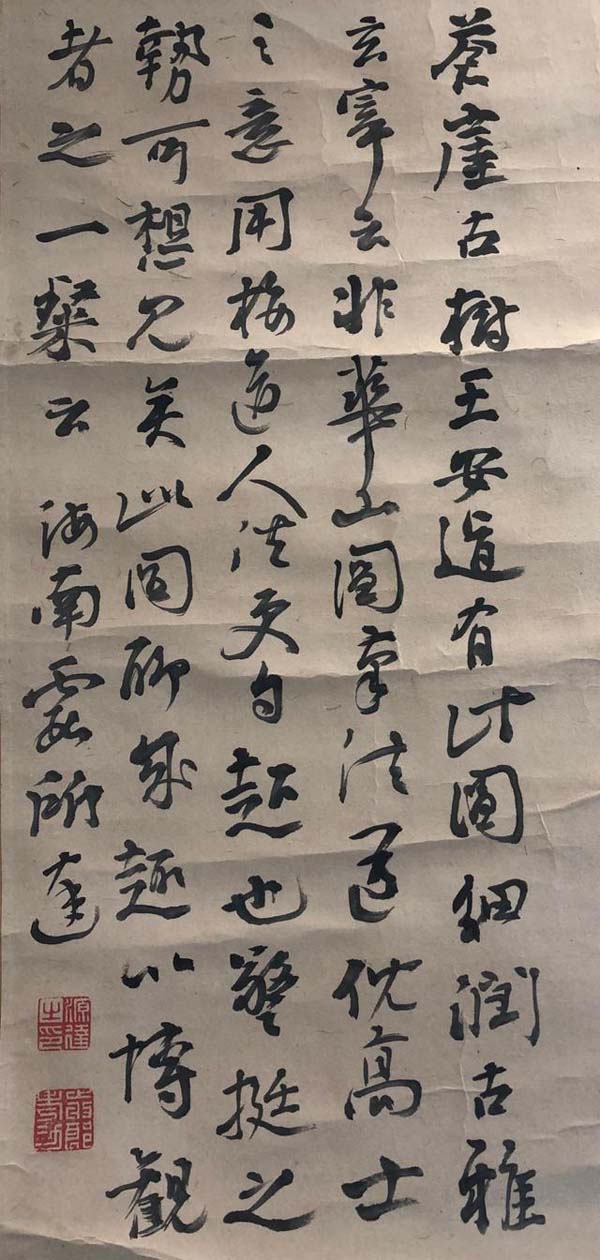 蒼崖古樹王安道有此圖細潤古雅
玄宰云非華山圖筆法倪高士
之意用梅道人法更自超也挺之
勢可想見矣此図聊成趣以博観
者之一粲云 海南霞所達
源達之印